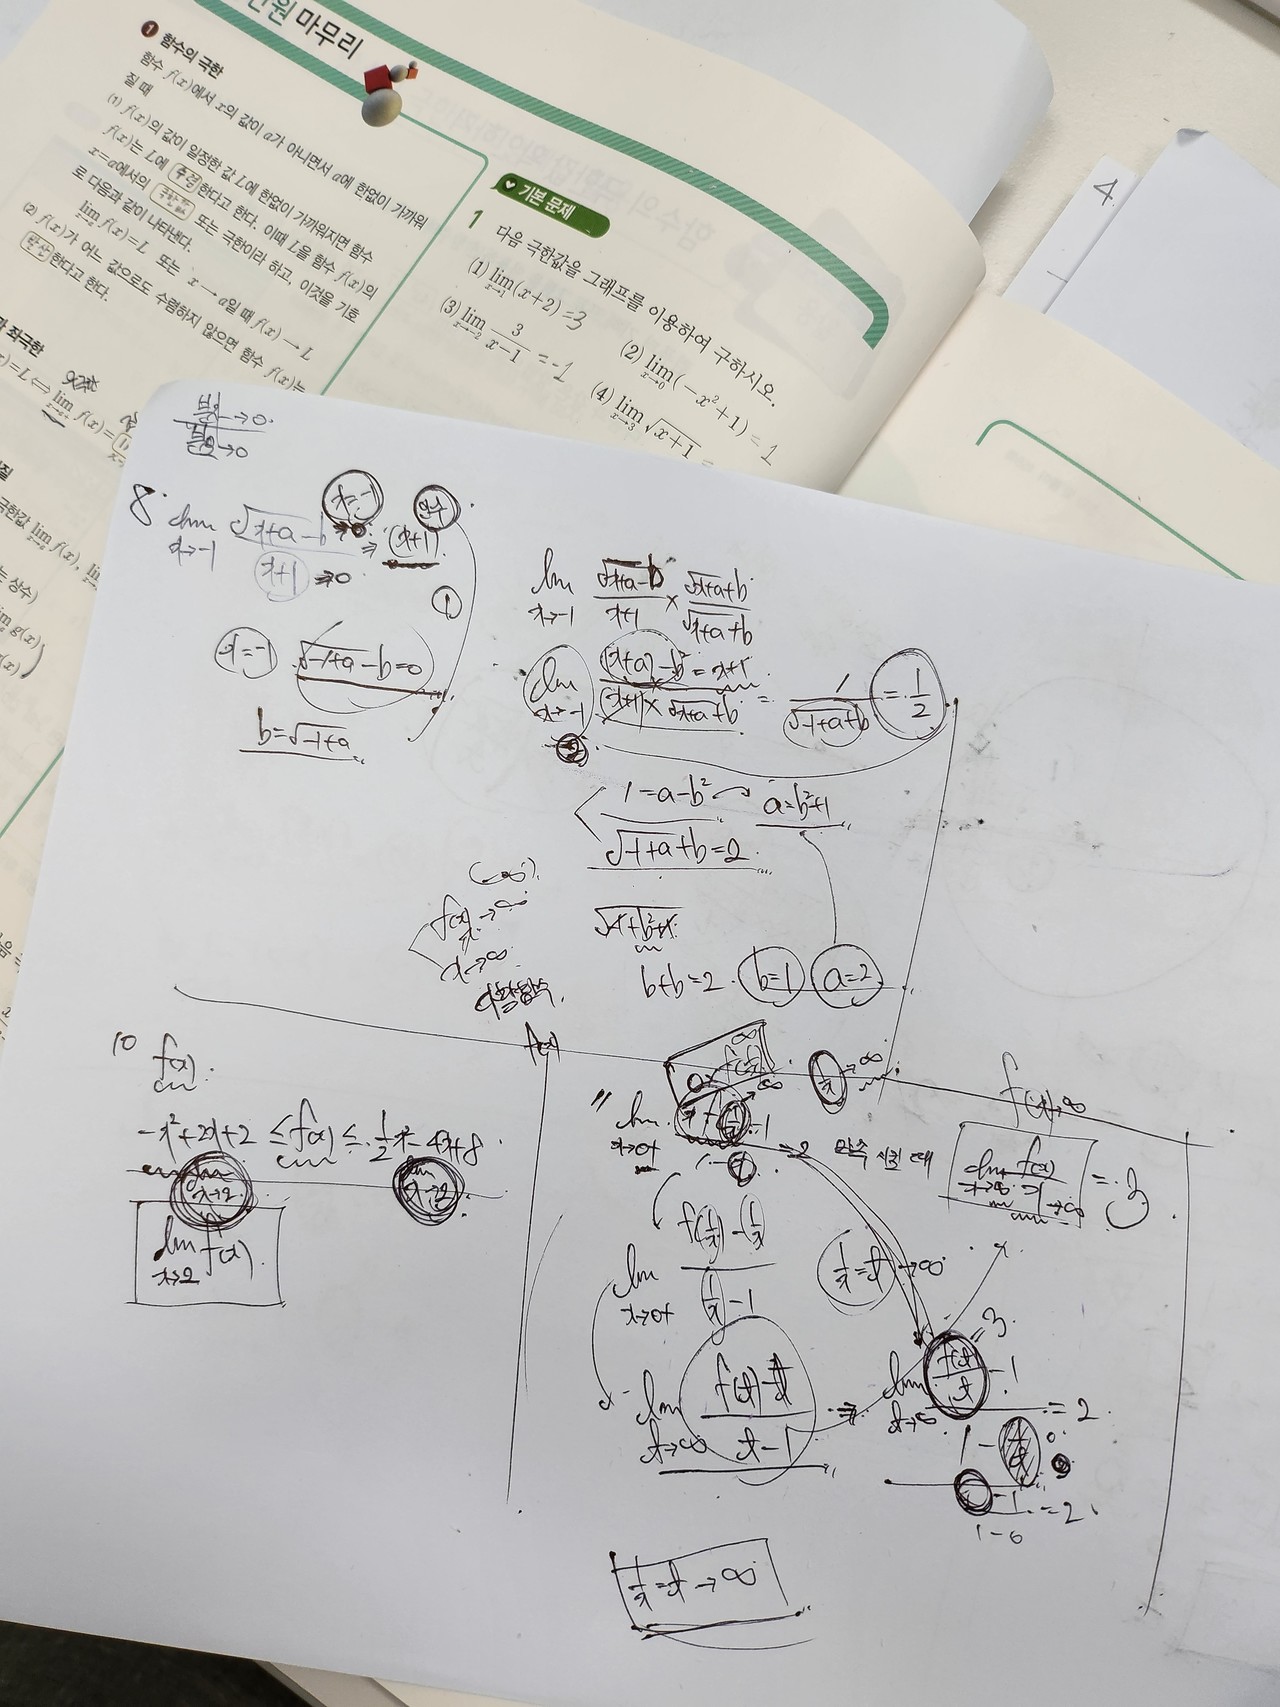 단원 마무리
1 함수의 극한
함수 f(x)에서 x의 값이 a가 아니면서 a에 한없이 가까워
질 때
(1) f(x)의 값이 일정한 값 L에 한없이 가까워지면 함수
f(x)는 L에 수렴한다고 한다. 이때 L을 함수 f(x)의
x=a에서의 극한값 또는 극한이라 하고, 이것을 기호
로 다음과 같이 나타낸다.
lim f(x)=L 또는 x → a일 때 f(x) → L
(2) f(x)가 어느 값으로도 수렴하지 않으면 함수 f(x)는
발산한다고 한다.
좌극한
=L ⟺ lim f(x)=
극한값 lim f(x),
는 상수)
기본 문제
1 다음 극한값을 그래프를 이용하여 구하시오.
(1) lim x→1 (x+2) =3
(2) lim x→0 (-x²+1) =1
(3) lim x→-2 3/(x-1) =-1
(4) lim x→3 √(x+1) =
4
→0
→0
8 lim x→-1 (√(x+a) -b)/(x+1) →0 ⇒ (x+1)
x=-1
①
x=-1 √(-1+a) -b=0
b=√(-1+a)
lim x→-1 (√(x+a) -b)/(x+1) × (√(x+a) +b)/(√(x+a) +b)
lim x→-1 ((x+a)-b² = x+1)/((x+1)×√(x+a) +b) = 1/(√(-1+a) +b) = 1/2
②
1=a-b² → a=b²+1
√(-1+a) +b=2
(-∞)
f(x)→∞
x→∞
다항함수
√(-1+b²+1)
b+b=2 b=1 a=2
10 f(x)
-x²+2x+2 ≤ f(x) ≤ 1/2x²-4x+8
lim x→2
lim x→2
lim x→2 f(x)
f(x)
1/x →∞
f(x)→∞
11 lim x→0+
=2 만족시킬 때 lim x→∞ f(x)/x = 3
lim x→0+ (f(1/x) - 1/x)/(1/x - 1)
1/x=t →∞
lim t→∞ (f(t)-t)/(t-1) ⇒ lim t→∞ (f(t)/t -1)/(1- 1/t) =2
=3
-1/1-0 =2
1/x=t →∞